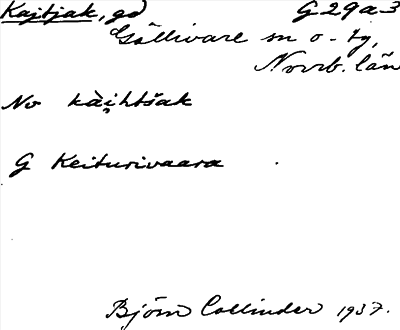 Kajtjak, gd G29a3
Gällivare sn o. tg,
Norrb. län
No kài̭htšak
G Keiturivaara
Björn Collinder 1937.